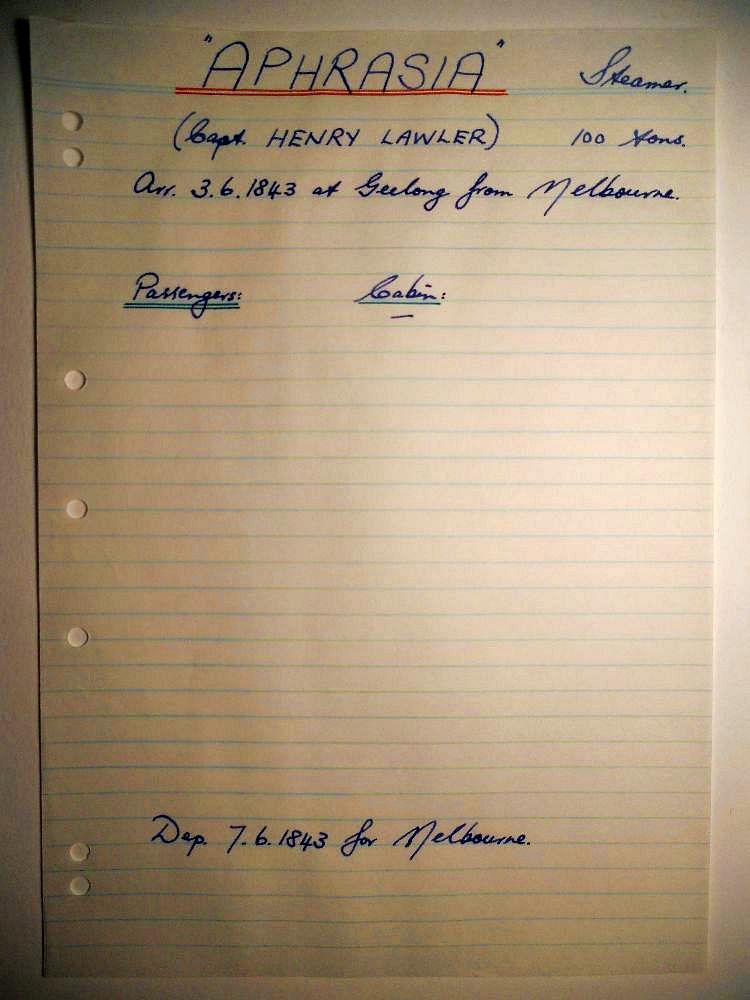 "APHRASIA" Steamer.
(Capt. HENRY LAWLER) 100 tons.
Arr. 3.6.1843 at Geelong from Melbourne.
Passengers: Cabin:
—
Dep. 7.6.1843 for Melbourne.